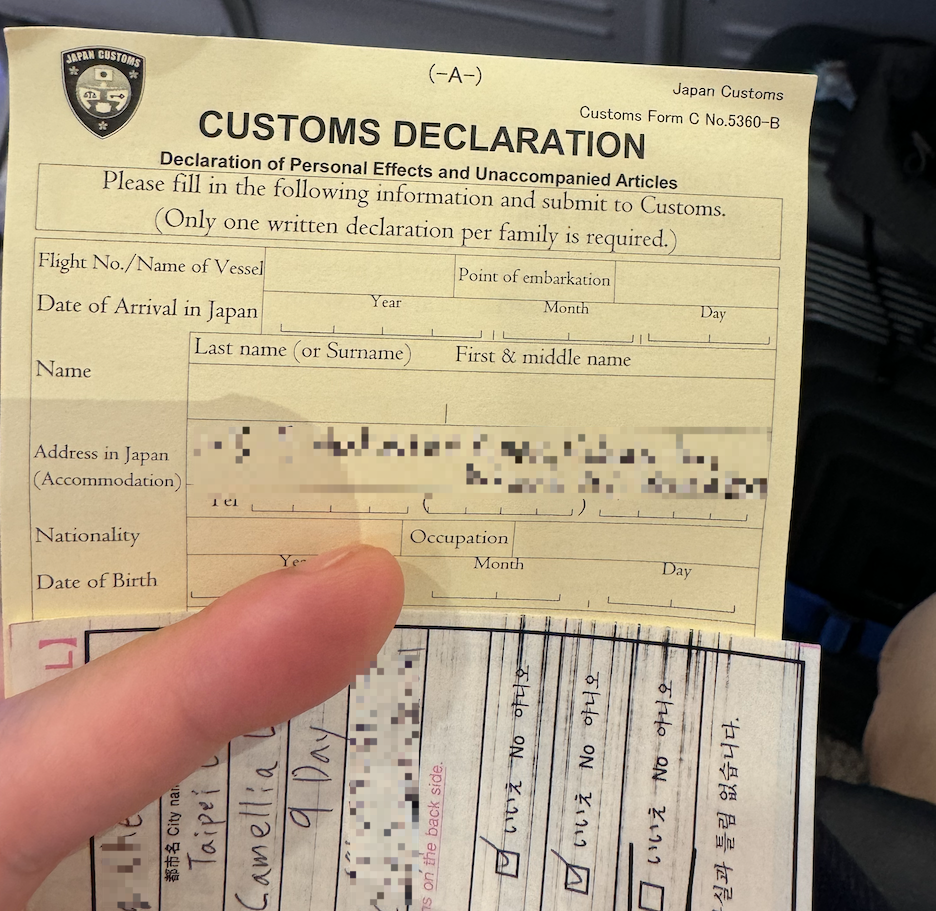 JAPAN CUSTOMS
(-A-)
Japan Customs
Customs Form C No.5360-B
CUSTOMS DECLARATION
Declaration of Personal Effects and Unaccompanied Articles
Please fill in the following information and submit to Customs.
(Only one written declaration per family is required.)
Flight No./Name of Vessel
Point of embarkation
Date of Arrival in Japan
Year Month Day
Name
Last name (or Surname) First & middle name
Address in Japan
(Accommodation)
Tel ( )
Nationality
Occupation
Date of Birth
Month Day
都市名 City
Taipei
Camellia
9 Day
on the back side.
いいえ No 아니오
いいえ No 아니오
いいえ No 아니오
틀림 없습니다.